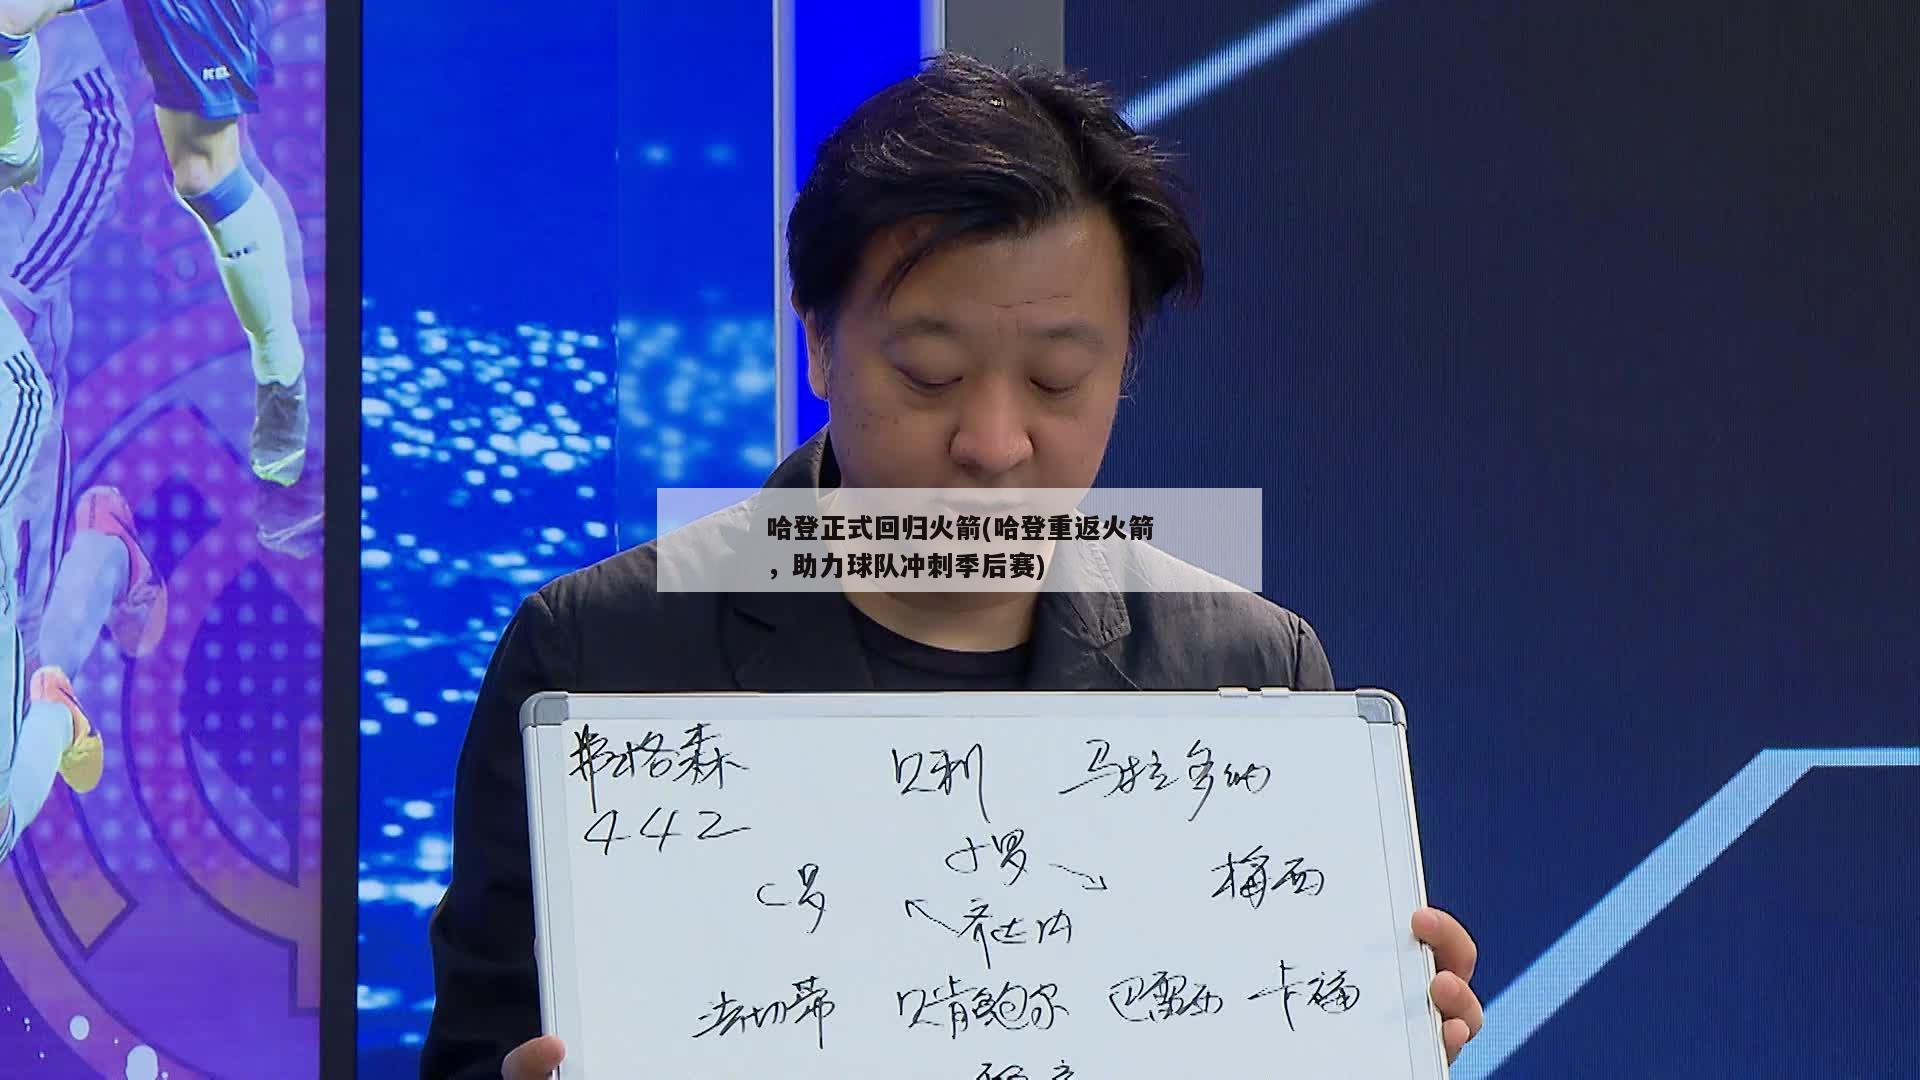 哈登正式回归火箭(哈登重返火箭
，助力球队冲刺季后赛)
弗格森 贝利 马拉多纳
442
小罗
C罗 梅西
齐达内
法切蒂 贝肯鲍尔 巴雷西 卡福